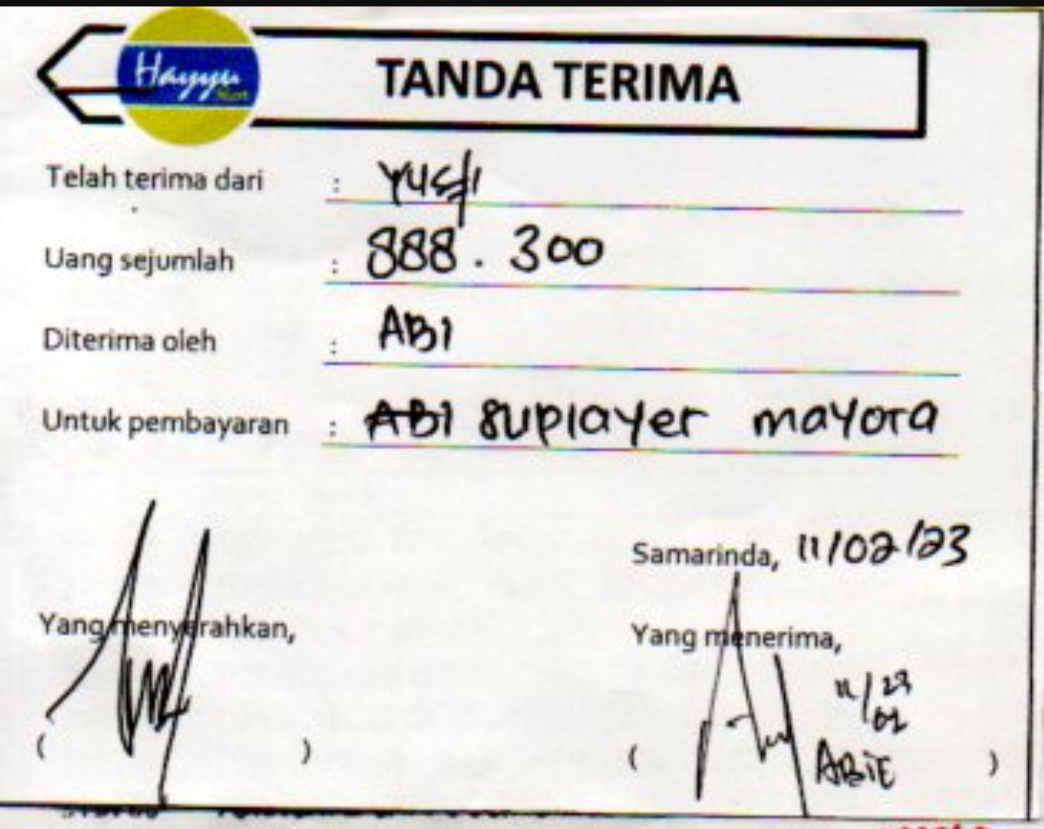 Hayyu
TANDA TERIMA
Telah terima dari : Yusfi
Uang sejumlah : 888.300
Diterima oleh : ABI
Untuk pembayaran : ABI suplayer mayora
Samarinda, 11/02/23
Yang menyerahkan, Yang menerima,
11/02 23
ABIE
( ) ( )